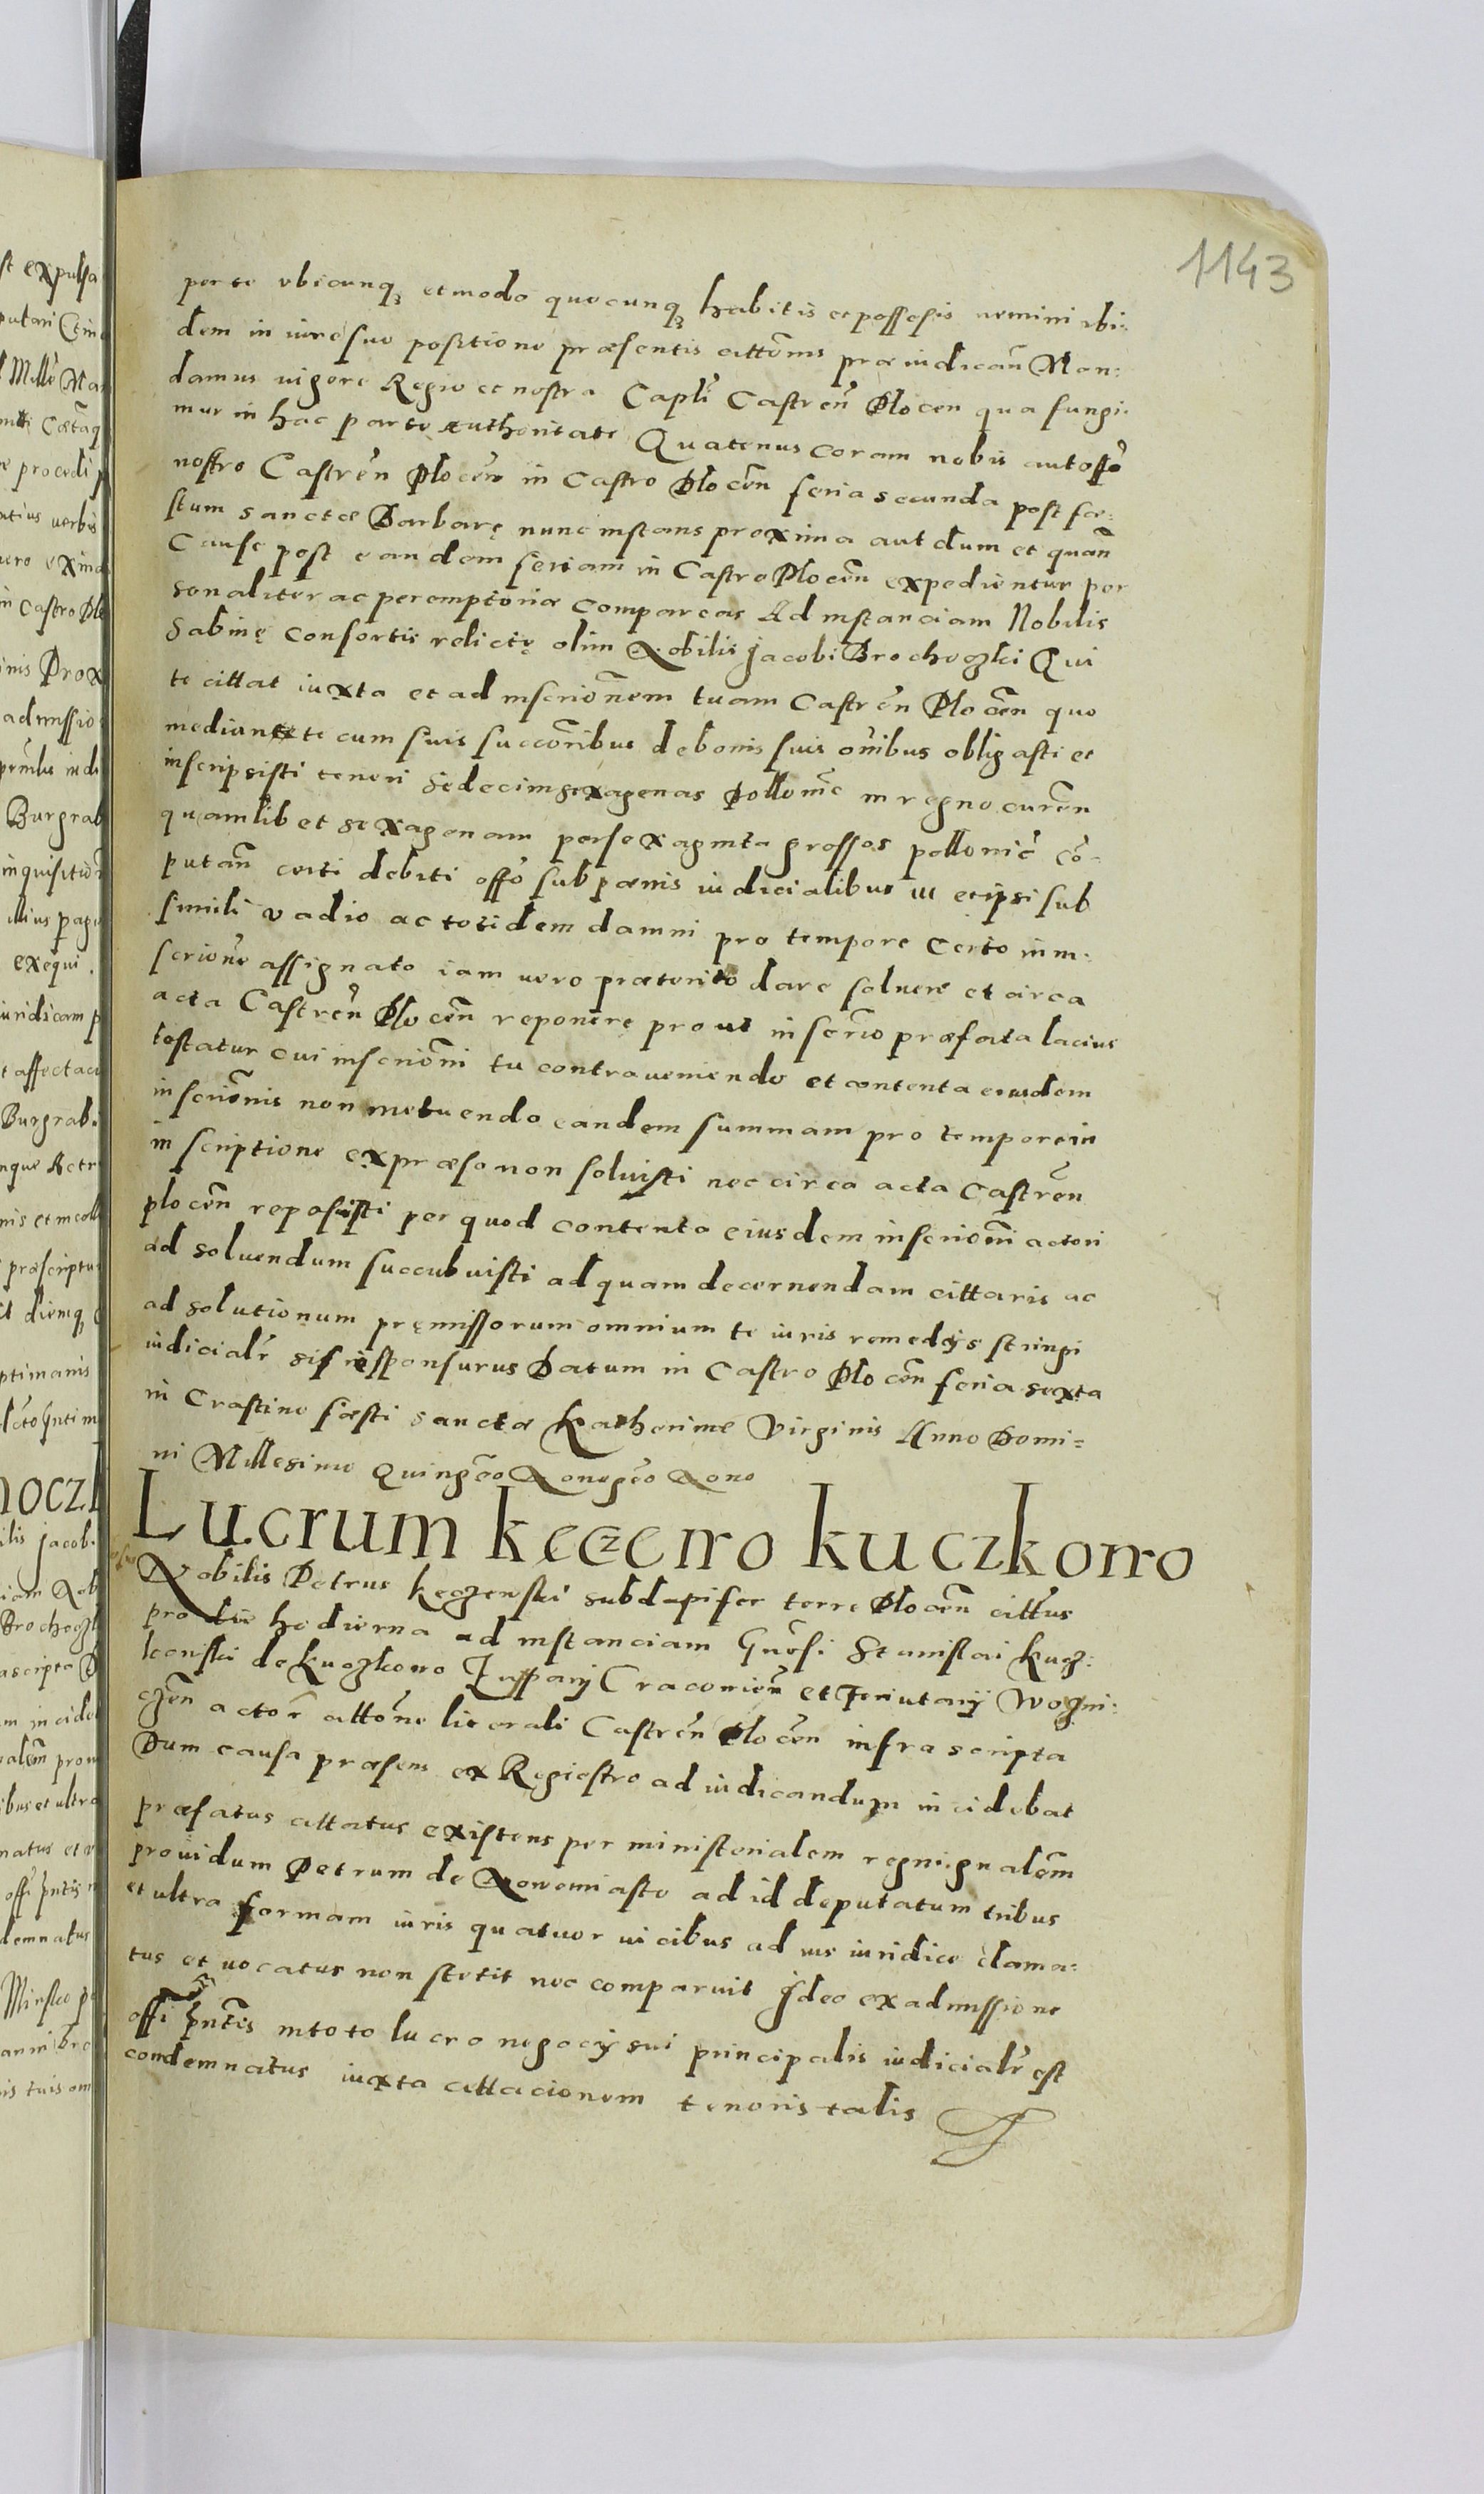 1143
per te vbicunq₃ et modo quocunq₃ habitis et possessis nemini ibi:
dem in iure suo positione præsentis cittõnis præiudicañ Man:
damus vigore Regio et nostra Capli Castreñ Plocen qua fungi:
mur in hac parte authoritate Quatenus coram nobis aut offõ
nostro Castreñ Ploceñ in Castro Ploceñ feria secunda post fæ:
stum sanctæ Barbarę nunc instans proxima aut dum et quañ
Causæ post eandem feriam in Castro Ploceñ expedientur per
sonaliter ac peremptoriæ compareas Ad instanciam Nobilis
Sabinę consortis relictę olim Nobilis Jacobi Brochoczki Qui
te cittat iuxta et ad inscriõnem tuam Castreñ Ploceñ quo
mediante te cum suis succoribus de bonis suis oĩbus obligasti et
inscripsisti teneri sedecim sexagenas Polloniĉ in regno cureñ
quamlibet sexagenam per sexaginta grossos pollonič cõ-
putañ certi debiti offõ sub pænis iudicialibus ut et ipsi sub
simili vadio ac totidem damni pro tempore certo in in:
scrione assignato iam uero præterito dare soluere et circa
acta Castreñ Ploceñ reponere prout inscrio præfata lacius
testatur cui inscriõni tu contraueniendo et contenta eiusdem
inscriõnis non metuendo eandem summam pro tempore in
inscriptione expræso non soluisti nec circa acta Castreñ
ploceñ reposuisti per quod contenta eiusdem inscriõni actori
ad soluendum succubuisti ad quam decernendam cittaris ac
ad solutionum pręmissorum omnium te iuris remedijs stringi
iudicialr̃ sis responsurus Datum in Castro Ploceñ feria sexta
in Crastino fæsti sanctæ Katherinæ Virginis Anno Domi=
ni Millesimo Quingẽo Nonogẽo Nono
Lucrum keczewo kuczkowo
Nobilis Petrus keczewski subdapifer terre Ploceñ cittus
pro die hodierna ad instanciam Gñosi Stanislai Kucz:
kowski de Kuczkowo Zuppary Cracowieñ et Tenutary Wogni:
czeñ actor̃ cittõne literali Castreñ Ploceñ infra scripta
Dum causa præsens ex Regiestro ad iudicandum incidebat
præfatus cittatus existens per ministerialem regni gnalẽm
prouidum Petrum de Nowemiasto ad id deputatum tribus
et ultra formam iuris quatuor uicibus ad ius iuridice clama:
tus et uocatus non stetit nec comparuit Ideo ex admissione
offi pñtis in toto lucro negocÿ sui principalis iudicialr̃ est
condemnatus iuxta cittacionem tenoris talis